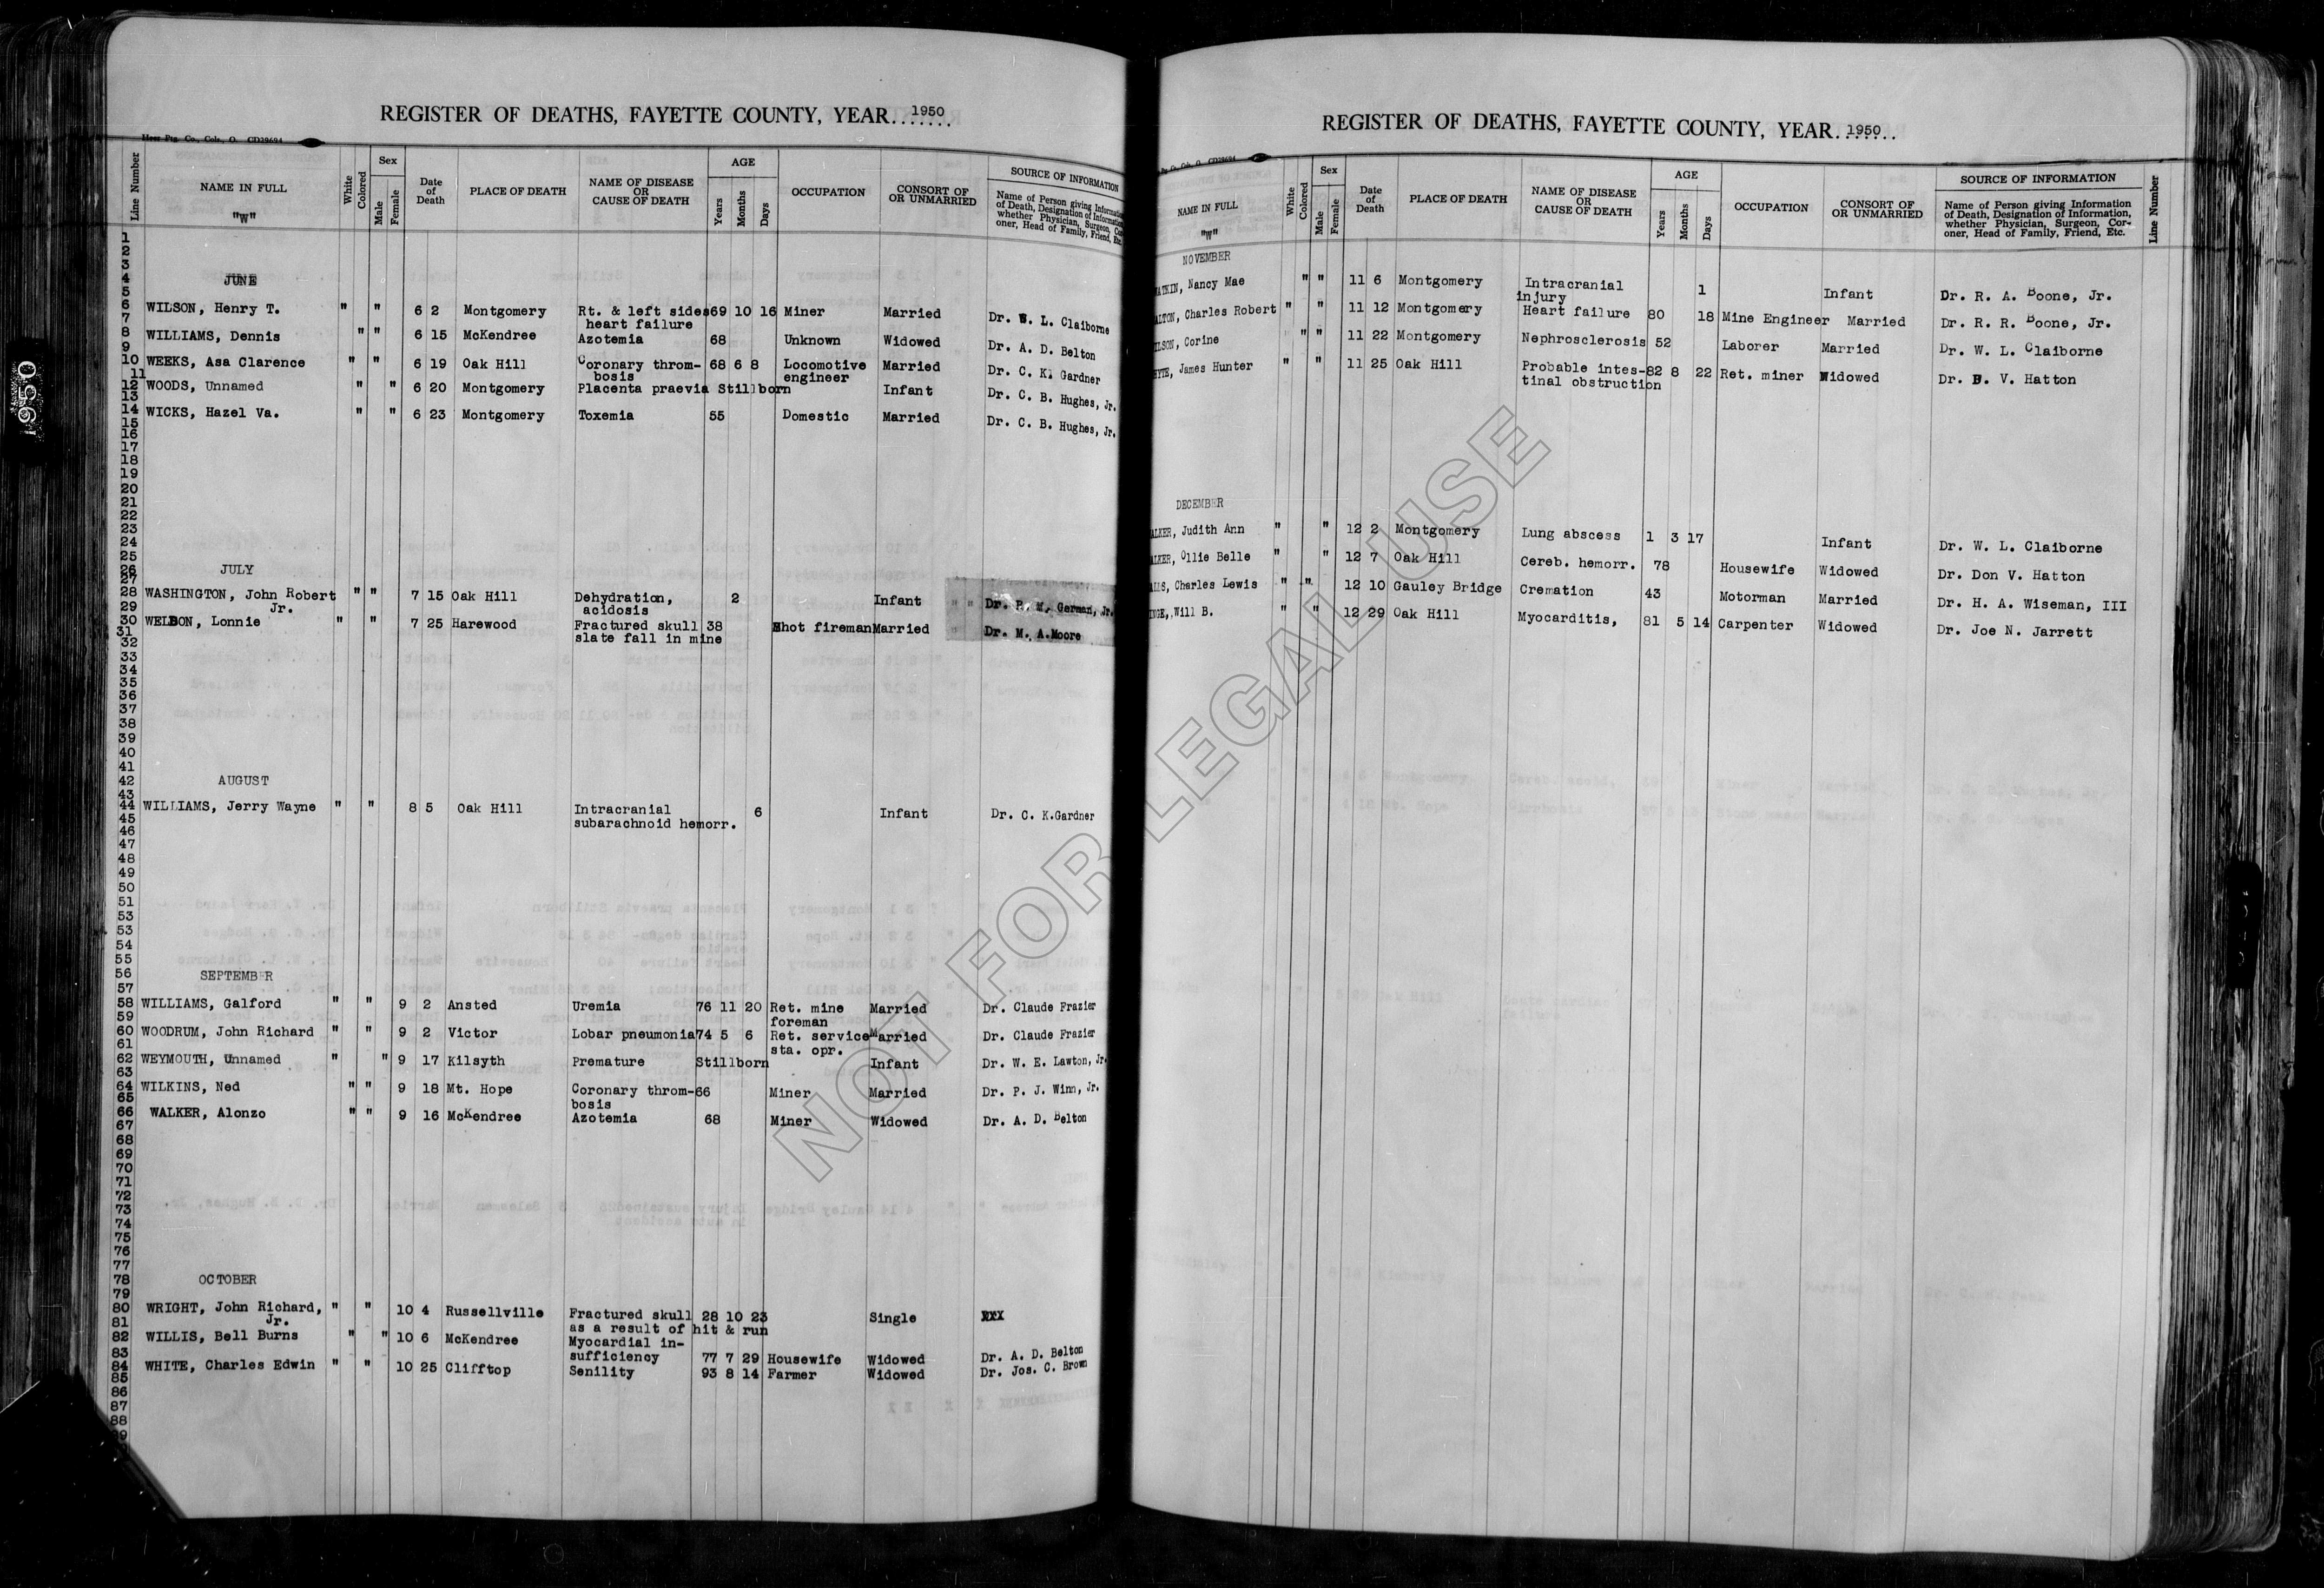 REGISTER OF DEATHS, FAYETTE COUNTY, YEAR.......1950
Line Number NAME IN FULL "W" White Colored Sex Male Female Date of Death PLACE OF DEATH NAME OF DISEASE OR CAUSE OF DEATH AGE Years Months Days OCCUPATION CONSORT OF OR UNMARRIED SOURCE OF INFORMATION
Name of Person giving Information of Death, Designation of Information, whether Physician, Surgeon, Coroner, Head of Family, Friend, Etc.
JUNE
WILSON, Henry T. " " 6 2 Montgomery Rt. & left sides 69 10 16 Miner Married Dr. W. L. Claiborne
heart failure
WILLIAMS, Dennis " " 6 15 McKendree Azotemia 68 Unknown Widowed Dr. A. D. Belton
WEEKS, Asa Clarence " " 6 19 Oak Hill Coronary throm- 68 6 8 Locomotive Married Dr. C. K. Gardner
bosis engineer
WOODS, Unnamed " " 6 20 Montgomery Placenta praevia Stillborn Infant Dr. C. B. Hughes, Jr.
WICKS, Hazel Va. " " 6 23 Montgomery Toxemia 55 Domestic Married Dr. C. B. Hughes, Jr.
JULY
WASHINGTON, John Robert " " 7 15 Oak Hill Dehydration, 2 Infant " " Dr. P. M. German, Jr.
Jr. acidosis
WELDON, Lonnie " " 7 25 Harewood Fractured skull 38 Shot fireman Married " Dr. M. A. Moore
slate fall in mine
AUGUST
WILLIAMS, Jerry Wayne " " 8 5 Oak Hill Intracranial 6 Infant Dr. C. K.Gardner
subarachnoid hemorr.
SEPTEMBER
WILLIAMS, Galford " " 9 2 Ansted Uremia 76 11 20 Ret. mine Married Dr. Claude Frazier
foreman
WOODRUM, John Richard " " 9 2 Victor Lobar pneumonia 74 5 6 Ret. service Married Dr. Claude Frazier
sta. opr.
WEYMOUTH, Unnamed " " 9 17 Kilsyth Premature Stillborn Infant Dr. W. E. Lawton, Jr.
WILKINS, Ned " " 9 18 Mt. Hope Coronary throm- 66 Miner Married Dr. P. J. Winn, Jr.
bosis
WALKER, Alonzo " " 9 16 McKendree Azotemia 68 Miner Widowed Dr. A. D. Belton
OCTOBER
WRIGHT, John Richard, " " 10 4 Russellville Fractured skull 28 10 23 Single XXX
Jr. as a result of hit & run
WILLIS, Bell Burns " " 10 6 McKendree Myocardial in-
sufficiency 77 7 29 Housewife Widowed Dr. A. D. Belton
WHITE, Charles Edwin " " 10 25 Clifftop Senility 93 8 14 Farmer Widowed Dr. Jos. C. Brown
1950
REGISTER OF DEATHS, FAYETTE COUNTY, YEAR.......1950
NAME IN FULL "W" White Colored Sex Male Female Date of Death PLACE OF DEATH NAME OF DISEASE OR CAUSE OF DEATH AGE Years Months Days OCCUPATION CONSORT OF OR UNMARRIED SOURCE OF INFORMATION Line Number
Name of Person giving Information of Death, Designation of Information, whether Physician, Surgeon, Coroner, Head of Family, Friend, Etc.
NOVEMBER
Nancy Mae " " 11 6 Montgomery Intracranial 1 Infant Dr. R. A. Boone, Jr.
injury
Charles Robert " " 11 12 Montgomery Heart failure 80 18 Mine Engineer Married Dr. R. R. Boone, Jr.
Corine " " 11 22 Montgomery Nephrosclerosis 52 Laborer Married Dr. W. L. Claiborne
James Hunter " " 11 25 Oak Hill Probable intes- 82 8 22 Ret. miner Widowed Dr. D. V. Hatton
tinal obstruction
DECEMBER
ALKER, Judith Ann " " 12 2 Montgomery Lung abscess 1 3 17 Infant Dr. W. L. Claiborne
ALKER, Ollie Belle " " 12 7 Oak Hill Cereb. hemorr. 78 Housewife Widowed Dr. Don V. Hatton
Charles Lewis " " 12 10 Gauley Bridge Cremation 43 Motorman Married Dr. H. A. Wiseman, III
Will B. " " 12 29 Oak Hill Myocarditis, 81 5 14 Carpenter Widowed Dr. Joe N. Jarrett
NOT FOR LEGAL USE